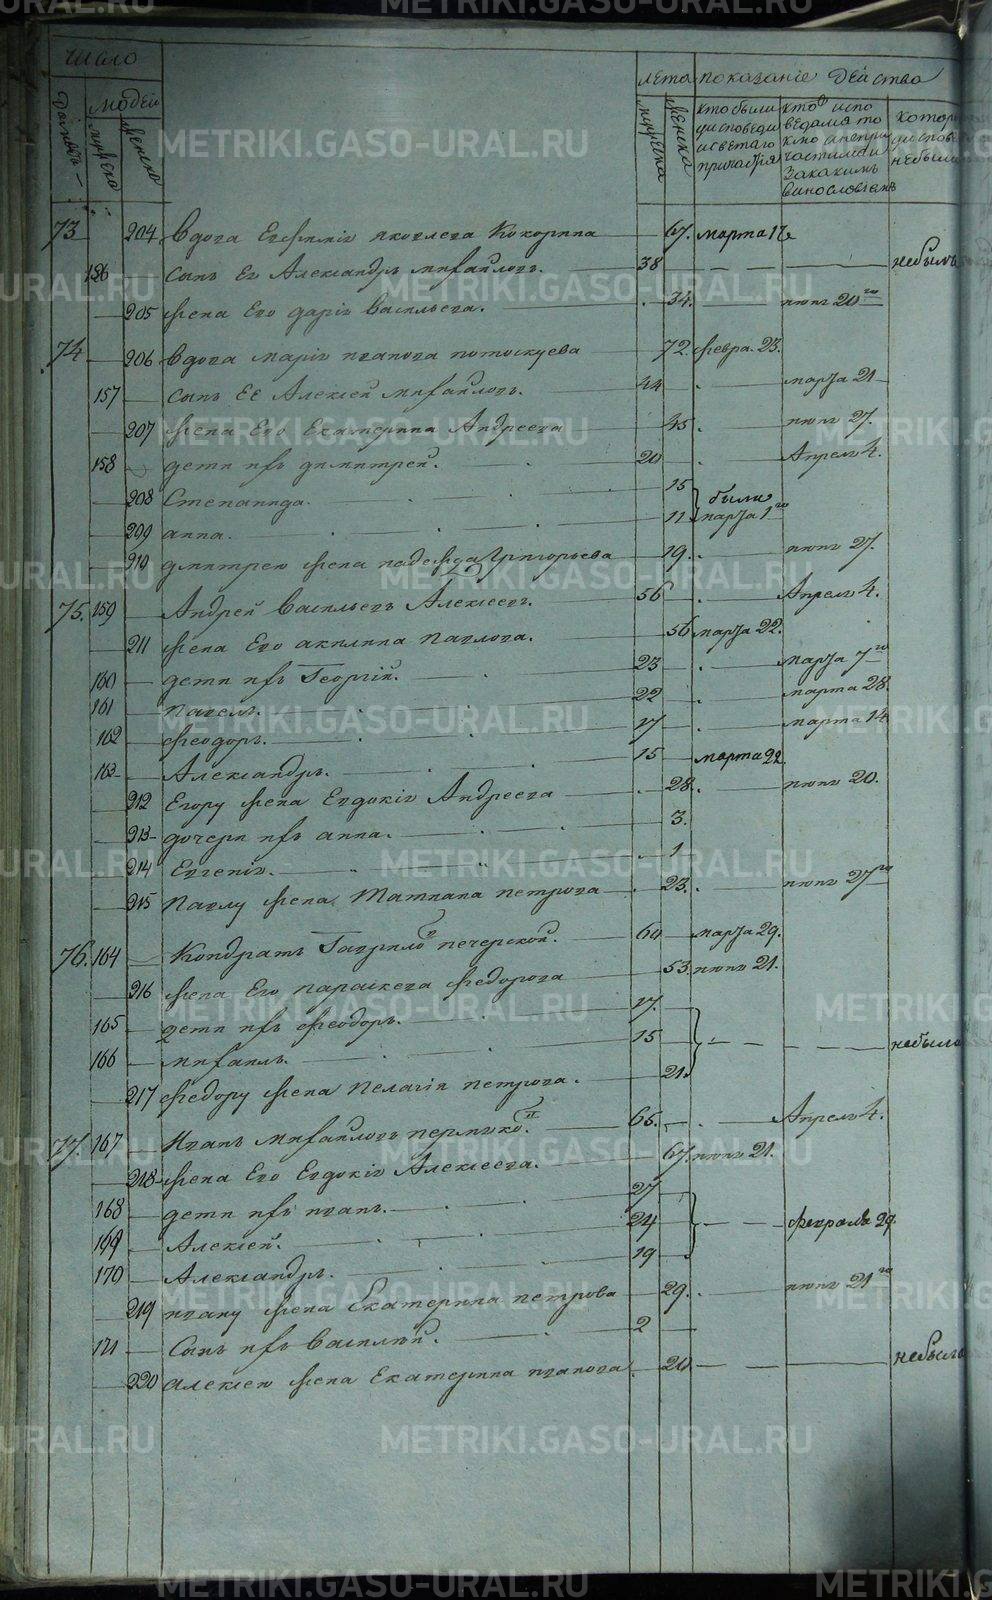 число
людей
домовъ
мужеска
женска
лета
мужеска
женска
показаніе действа
кто были у исповеди и святаго причастія
кто исповедался токмо а не причастился и за какимъ винословіемъ
котор у испове не были
73 204 вдова Евфимія яковлева Кокорина 67. марта 17
156 сынъ Ея Александръ михайловъ. 38 небылъ
205 жена Его дарія васильева. 34. июня 20го
74 206 вдова марія иванова потоскуева 72. февра. 23.
157 сынъ ЕЕ Алексей михайловъ. 44 марта 21
207 жена Его Екатерина Андреева 45 июня 27.
158 дети ихъ димитрей. 20 Апреля 4.
208 Степанида. 15 были
209 анна. 11 марта 1го
210 дмитрею жена надежда Григорьева 19. июня 27.
75. 159 Андрей васильевъ Алексеевъ. 56 Апреля 4.
211 жена Его акилина павлова. 56 марта 22.
160 дети ихъ Георгій. 23 марта 7го
161 павелъ. 22 марта 28.
162 феодоръ. 17 марта 14
163 Александръ. 15 марта 22
212 Егору жена Евдокія Андреева 28. июня 20.
213 дочери ихъ анна. 3.
214 Евгенія. 1
215 павлу жена, Татиана петрова 23. июня 27го
76. 164 Кондратъ Гаврилов печерской. 60 марта 29.
216 жена Его параскева федорова 53. июня 21.
165 дети ихъ феодоръ. 17.
166 михаилъ. 15 небыли
217 федору жена пелагія петрова. 21.
77. 167 иванъ михайловъ пермяко. 65. Апреля 4.
218 жена Его Евдокія Алексеева. 67. июня 21.
168 дети ихъ иванъ. 27
169 Алексей. 24 февраля 29.
170 Александръ. 19
219 ивану жена Екатерина петрова 29. июня 21го
171 Сынъ ихъ василій. 2
220 алексею жена Екатерина иванова. 20 небыла
METRIKI.GASO-URAL.RU